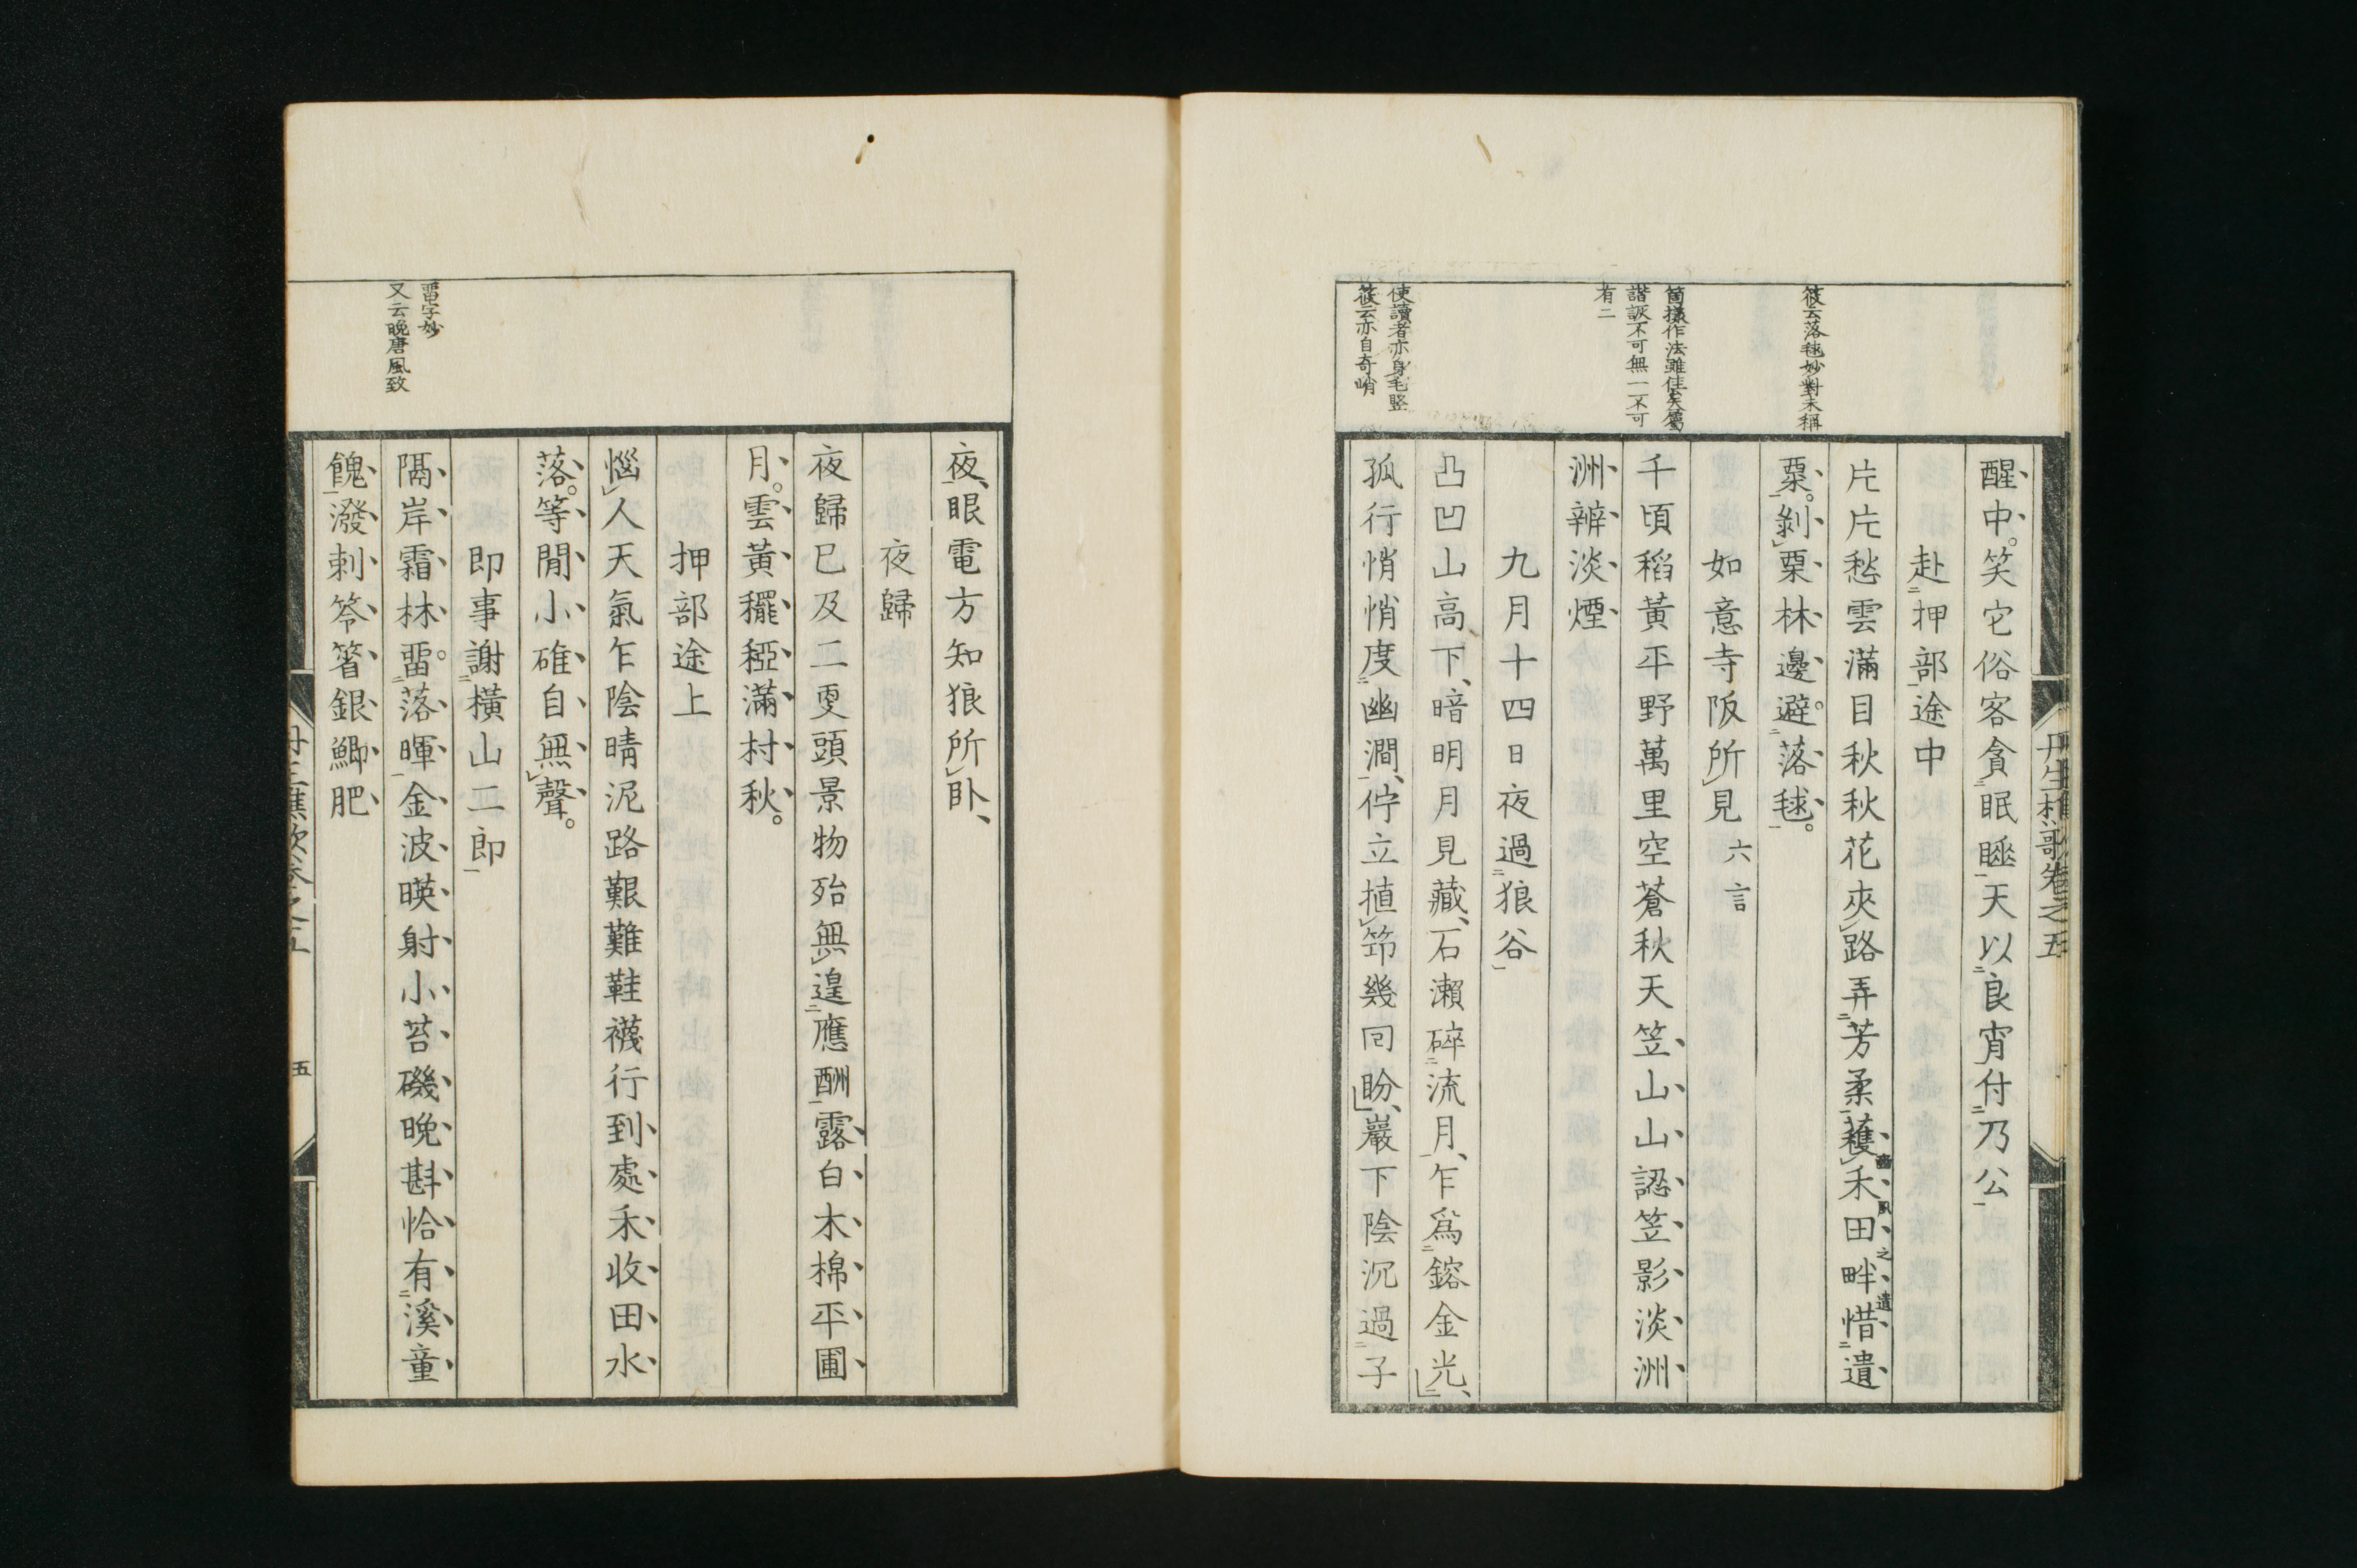 筱云落毬妙對未稱
箇㨾作法雖佳矣屬
諧詼不可無一不可
有二
使讀者亦身毛竪
筱云亦自奇峭
醒中笑它俗客貪眠睡天以良宵付乃公
赴押部途中
片片愁雲滿目秋秋花夾路弄芳柔穫禾田畔惜遺
粟剝栗林邊避落毬
如意寺阪所見 六言
千頃稻黃平野萬里空蒼秋天笠山山認笠影淡洲
洲辨淡煙
九月十四日夜過狼谷
凸凹山高下暗明月見藏石瀬碎流月乍爲鎔金光
孤行悄悄度幽澗佇立植笻幾回盼巖下陰沉過子
丹生樵歌卷之五
畱字妙
又云晚唐風致
夜眼電方知狼所臥
夜歸
夜歸已及二更頭景物殆無遑應酬露白木棉平圃
月雲黃䆉稏滿村秋
押部途上
惱人天氣乍陰晴泥路艱難鞋襪行到處禾收田水
落等閒小碓自無聲
即事謝橫山二郎
隔岸霜林畱落暉金波暎射小苔磯晚斟恰有溪童
餽潑剌笭箵銀鯽肥
五